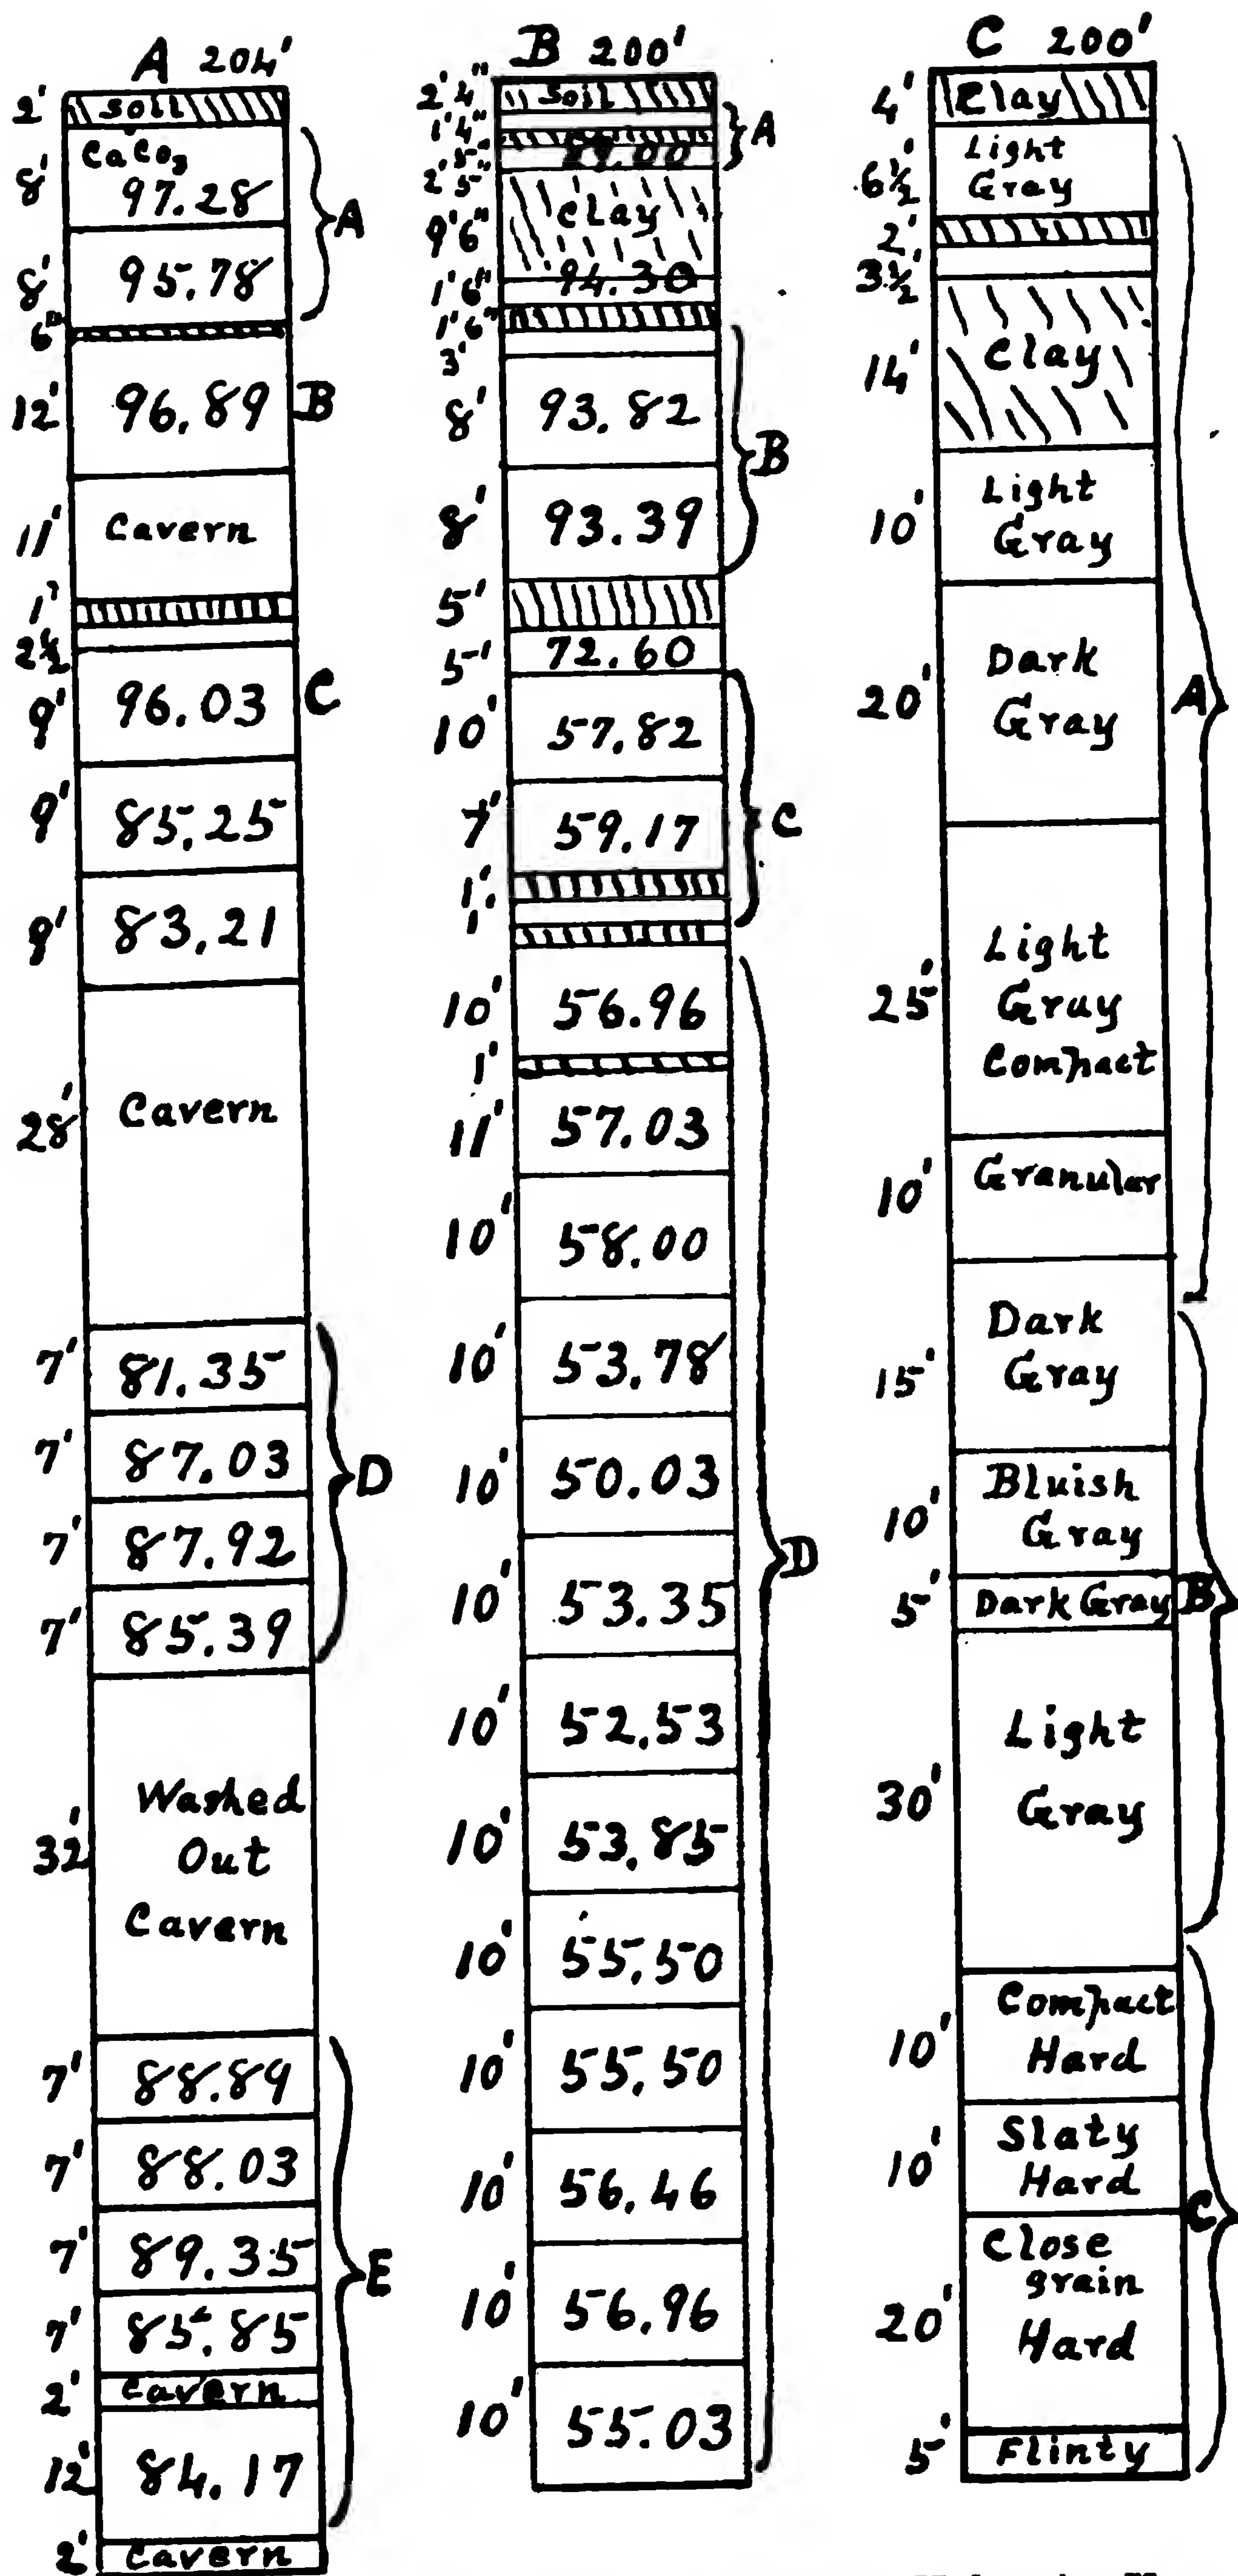 A 204'
2' Soil
8' CaCO3
97.28
A
8' 95.78
6"
12' 96.89 B
11' Cavern
1'
2½
9' 96.03 C
9' 85.25
9' 83.21
28' Cavern
7' 81.35
7' 87.03
D
7' 87.92
7' 85.39
32' Washed
Out
Cavern
7' 88.89
7' 88.03
7' 89.35
E
7' 85.85
2' Cavern
12' 84.17
2' Cavern
B 200'
2'4" Soil
1'4"
A
5"
2'5"
9'6" Clay
1'6" 94.30
1'6"
3'
8' 93.82
B
8' 93.39
5'
5' 72.60
10' 57.82
7' 59.17
C
1'
1'
10' 56.96
1'
11' 57.03
10' 58.00
10' 53.78
10' 50.03
D
10' 53.35
10' 52.53
10' 53.85
10' 55.50
10' 55.50
10' 56.46
10' 56.96
10' 55.03
C 200'
4' Clay
6½' Light
Gray
2'
3½'
14' Clay
10' Light
Gray
20' Dark
Gray
A
25' Light
Gray
Compact
10' Granular
15' Dark
Gray
10' Bluish
Gray
5' Dark Gray B
30' Light
Gray
10' Compact
Hard
10' Slaty
Hard
C
20' Close
grain
Hard
5' Flinty